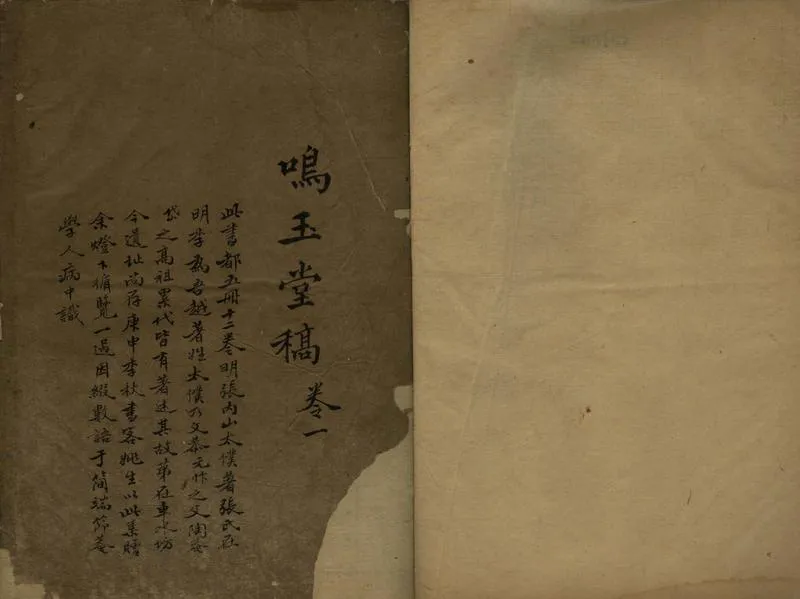 鳴玉堂稿 卷一
此書都五冊十二卷明張內山太僕著張氏在
明季為吾越著姓太僕乃文恭元忭之父陶菴
岱之高祖累代皆有著述其故第在車水坊
今遺址尚存庚申季秋書客姚生以此集贈
余燈下循覽一過因綴數語于簡端節菴
學人病中識